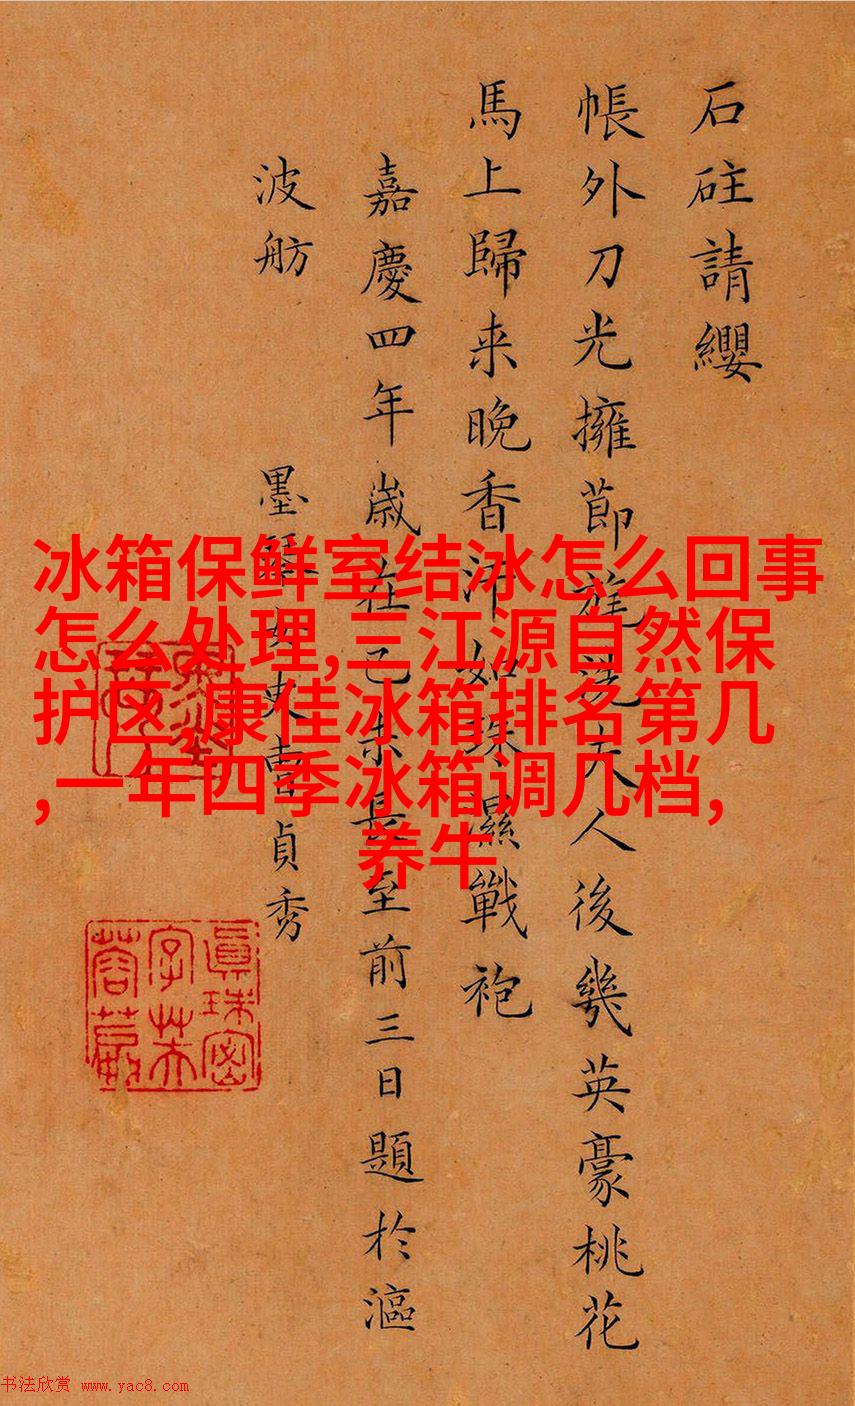 石砫請纓
帳外刀光擁節旄洗夫人後幾英豪桃花
馬上歸来晚香汗如珠濕戰袍
嘉慶四年歲在己未長至前三日題於漚
波舫
墨琴女史曹貞秀
冰箱保鲜室结冰怎么回事
怎么处理,三江源自然保
护区,康佳冰箱排名第几
,一年四季冰箱调几档,
养牛
书法欣赏 www.yac8.com